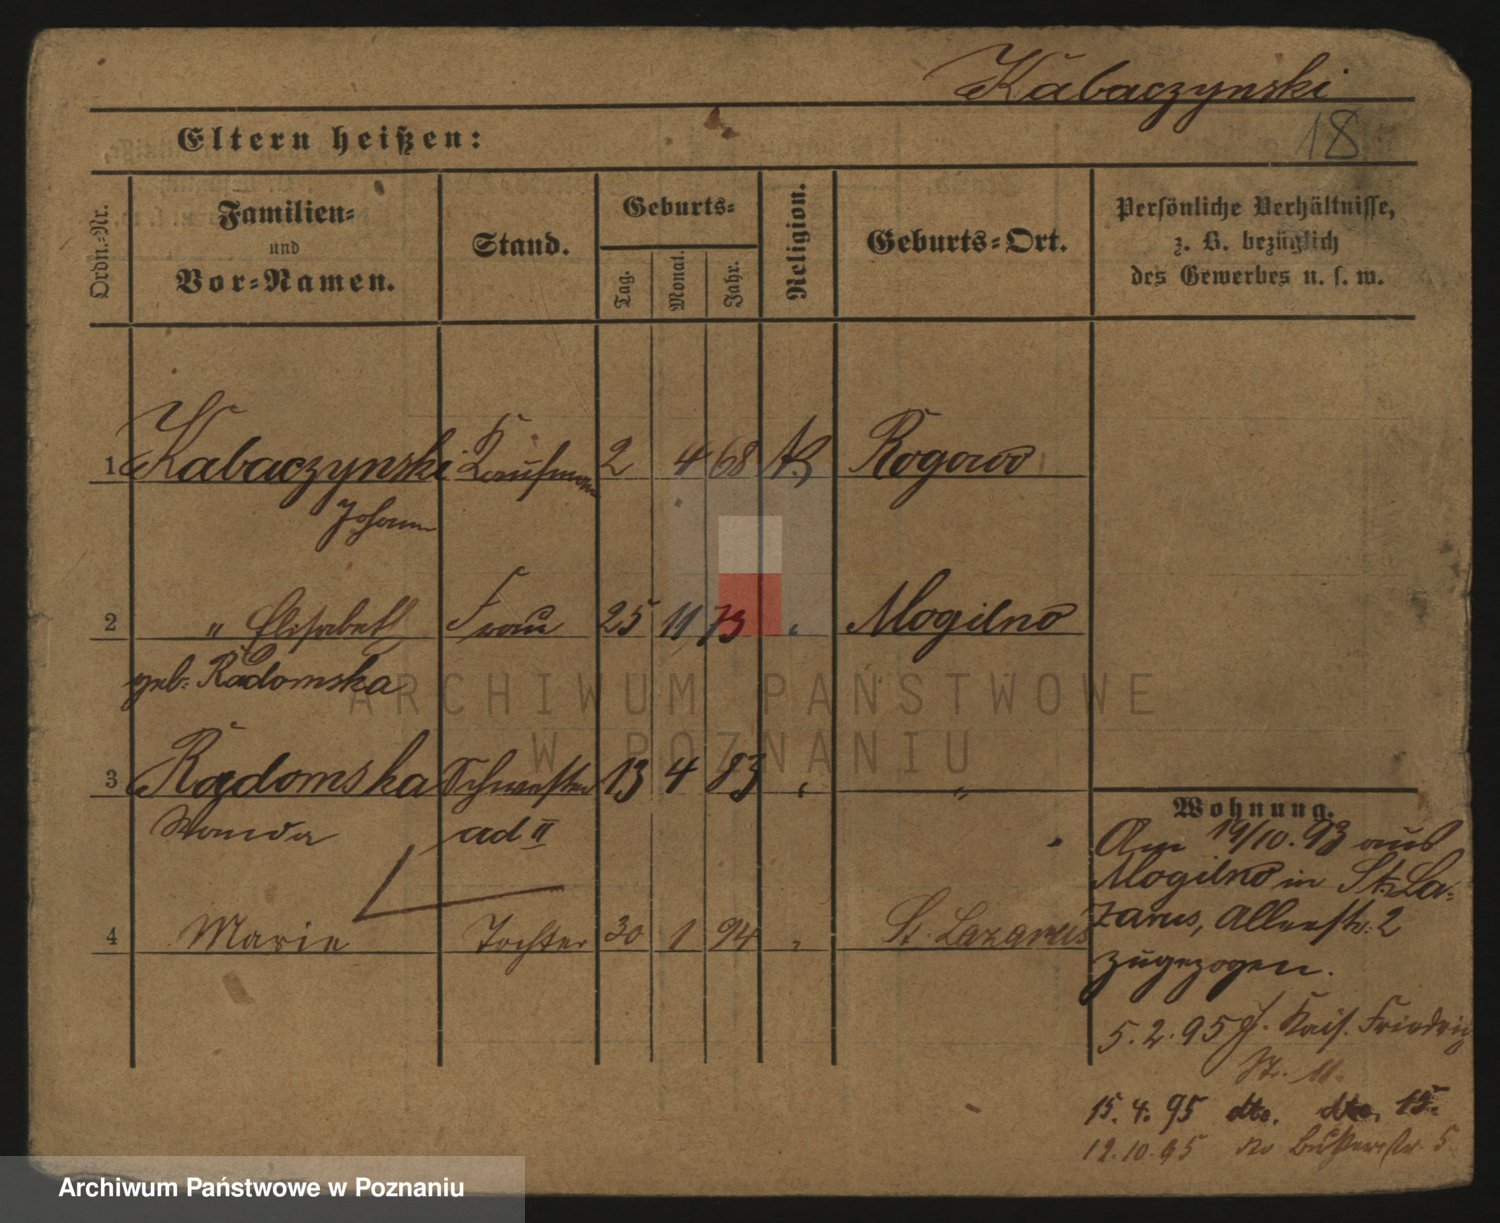 Kabaczynski
18
Eltern heißen:
Ordn.-Nr.
Familien-
und
Vor-Namen.
Stand.
Geburts-
Tag.
Monat.
Jahr.
Religion.
Geburts-Ort.
Persönliche Verhältnisse,
z. B. bezüglich
des Gewerbes u. s. w.
1 Kabaczynski Kaufmann 2 4 68 Rogowo
Johann
2 " Elisabeth Frau 25 11 73 " Mogilno
geb. Radomska
3 Radomska Schwester 13 4 83 " "
Wanda ad II
4 Marie Tochter 30 1 94 " St. Lazarus
Wohnung.
Am 19/10. 93 aus
Mogilno in St. La-
zarus, Alleestr. 2
zugezogen.
5. 2. 95 Kais. Friedrich
Str. 11.
15. 4. 95 dto. dto. 15.
12. 10. 95 do 5
ARCHIWUM PAŃSTWOWE
W POZNANIU
Archiwum Państwowe w Poznaniu